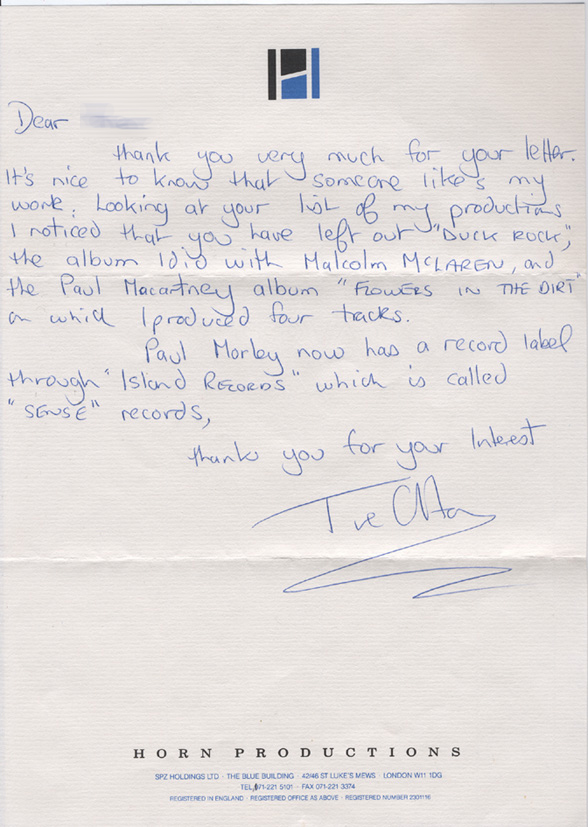 Dear
thank you very much for your letter.
It's nice to know that someone like's my
work. Looking at your list of my productions
I noticed that you have left out "DUCK ROCK",
the album I did with Malcolm McLAREN, and
the Paul Macartney album "FLOWERS IN THE DIRT"
on which I produced four tracks.
Paul Morley now has a record label
through "Island RECORDS" which is called
"SENSE" records,
thank you for your Interest
HORN PRODUCTIONS
SPZ HOLDINGS LTD · THE BLUE BUILDING · 42/46 ST LUKE'S MEWS · LONDON W11 1DG
TEL 071-221 5101 · FAX 071-221 3374
REGISTERED IN ENGLAND · REGISTERED OFFICE AS ABOVE · REGISTERED NUMBER 2331116